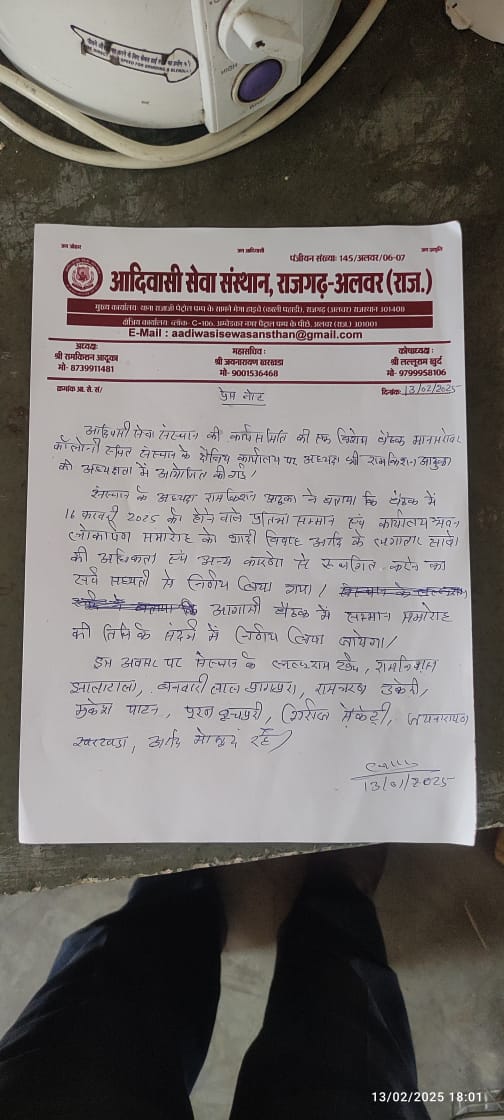 HIGH
जय जोहार जय आदिवासी जय प्रकृति
पंजीयन संख्या: 145/अलवर/06-07
आदिवासी सेवा संस्थान, राजगढ़-अलवर (राज.)
मुख्य कार्यालय: थाना राजाजी पेट्रोल पम्प के सामने मेगा हाइवे (काली पहाड़ी), राजगढ़ (अलवर) राजस्थान 301408
क्षेत्रिय कार्यालय: ब्लॉक- C-106, अम्बेडकर नगर पेट्रोल पम्प के पीछे, अलवर (राज.) 301001
E-Mail : aadiwasisewasansthan@gmail.com
अध्यक्ष: महासचिव : कोषाध्यक्ष :
श्री रामकिशन आदूका श्री जयनारायण खारखड़ा श्री लल्लूराम खुर्द
मो- 8739911481 मो- 9001536468 मो- 9799958106
क्रमांक आ. से. सं/ दिनांक: 13/02/2025
प्रेस नोट
आदिवासी सेवा संस्थान की कार्यसमिति की एक विशेष बैठक मानसरोवर
कॉलोनी स्थित संस्थान के क्षेत्रिय कार्यालय पर अध्यक्ष श्री रामकिशन आदूका
की अध्यक्षता में आयोजित की गई।
संस्थान के अध्यक्ष रामकिशन आदूका ने बताया कि बैठक में
16 फरवरी 2025 को होने वाले प्रतिभा सम्मान एवं कार्यालय भवन
लोकार्पण समारोह को शादी विवाह आदि के लगातार सावे
की अधिकता एवं अन्य कारणों से स्थगित करने का
सर्व सम्मती से निर्णय लिया गया।
आगामी बैठक में सम्मान समारोह
की तिथि के संदर्भ में निर्णय लिया जायेगा।
इस अवसर पर संस्थान के लल्लूराम खुर्द, रामनिवास
झालाटाला, बनवारी लाल, रामचरण
मुकेश पाटन, पूरन, गिर्राज, जयनारायण
खारखड़ा, आदि मौजूद रहे।
13/02/2025
13/02/2025 18:01